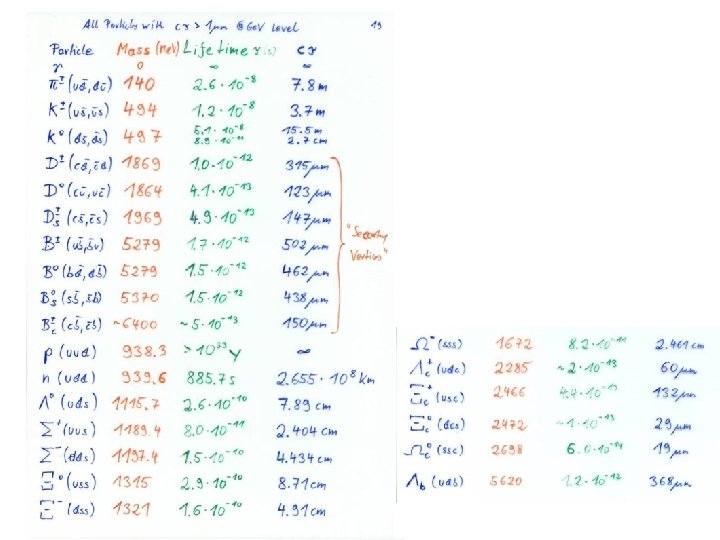 All Particles with cτ > 1μm @ GeV Level 19
Particle Mass (MeV) Life time τ(s) cτ
γ 0 ∞ ∞
π± (ud̄, dū) 140 2.6·10⁻⁸ 7.8 m
K± (us̄, ūs) 494 1.2·10⁻⁸ 3.7 m
K⁰ (ds̄, d̄s) 497 5.1·10⁻⁸ 15.5 m
8.9·10⁻¹¹ 2.7 cm
D± (cd̄, c̄d) 1869 1.0·10⁻¹² 315 μm
D⁰ (cū, uc̄) 1864 4.1·10⁻¹³ 123 μm
Ds± (cs̄, c̄s) 1969 4.9·10⁻¹³ 147 μm
"Secondary
Vertices"
B± (ub̄, b̄u) 5279 1.7·10⁻¹² 502 μm
B⁰ (bd̄, db̄) 5279 1.5·10⁻¹² 462 μm
Bs⁰ (sb̄, s̄b) 5370 1.5·10⁻¹² 438 μm
Bc± (cb̄, c̄b) ~6400 ~5·10⁻¹³ 150 μm
p (uud) 938.3 > 10³³ Y ∞
n (udd) 939.6 885.7 s 2.655·10⁸ km
Λ⁰ (uds) 1115.7 2.6·10⁻¹⁰ 7.89 cm
Σ⁺ (uus) 1189.4 8.0·10⁻¹¹ 2.404 cm
Σ⁻ (dds) 1197.4 1.5·10⁻¹⁰ 4.434 cm
Ξ⁰ (uss) 1315 2.9·10⁻¹⁰ 8.71 cm
Ξ⁻ (dss) 1321 1.6·10⁻¹⁰ 4.91 cm
Ω⁻ (sss) 1672 8.2·10⁻¹¹ 2.461 cm
Λc⁺ (udc) 2285 ~2·10⁻¹³ 60 μm
Ξc⁺ (usc) 2466 4.4·10⁻¹³ 132 μm
Ξc⁰ (dcs) 2472 ~1·10⁻¹³ 29 μm
Ωc⁰ (ssc) 2698 6.0·10⁻¹⁴ 19 μm
Λb (udb) 5620 1.2·10⁻¹² 368 μm